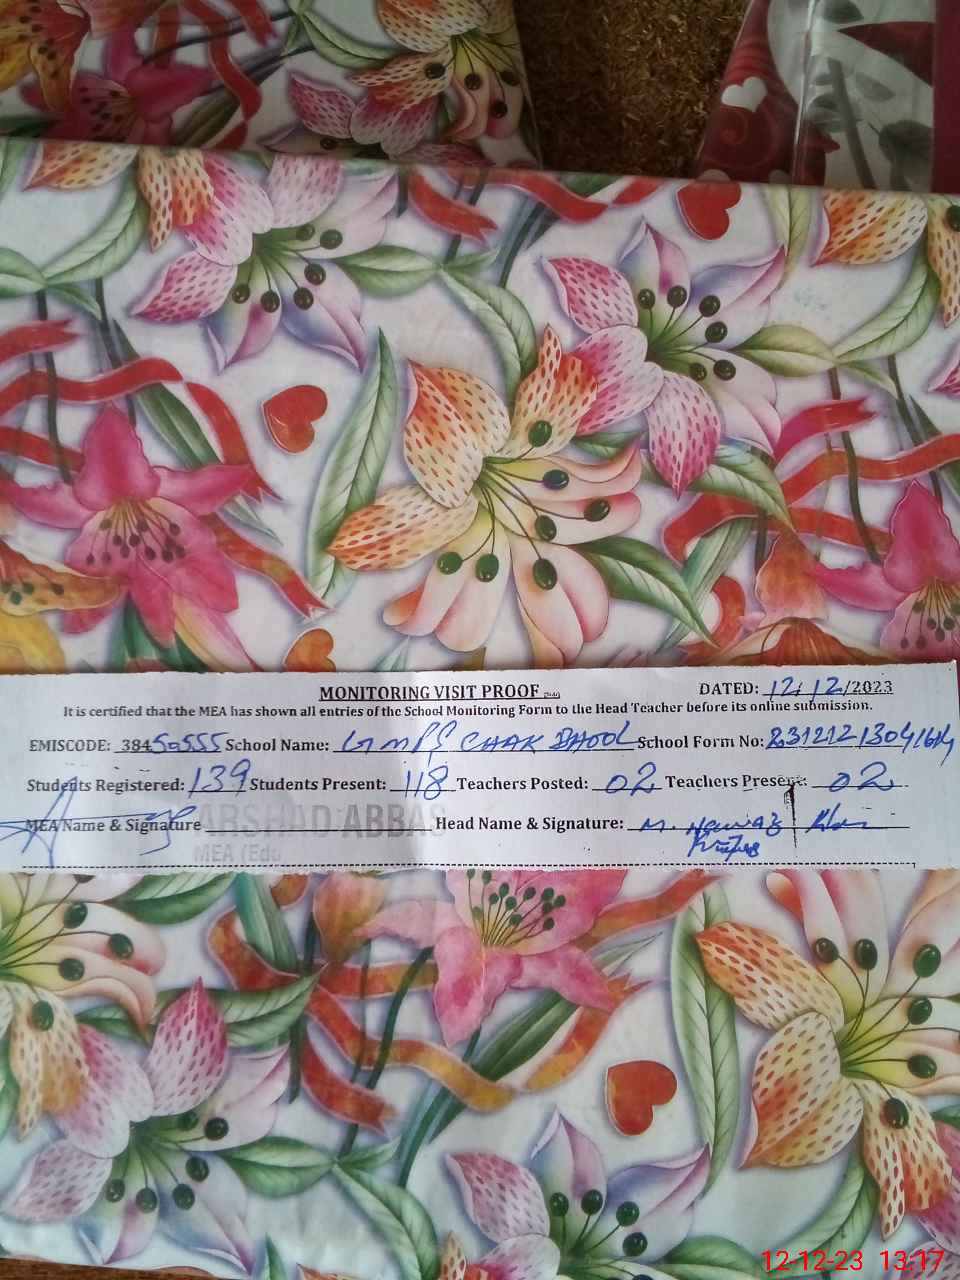 MONITORING VISIT PROOF
DATED: 12/12/2023
It is certified that the MEA has shown all entries of the School Monitoring Form to the Head Teacher before its online submission.
EMISCODE: 38450555 School Name: GMPS CHAK BHOOL School Form No:
Students Registered: 139 Students Present: 118 Teachers Posted: 02 Teachers Present: 02
MEA Name & Signature ARSHAD ABBAS Head Name & Signature: M. Nawaz Khan
MEA (Edu
12-12-23 13:17